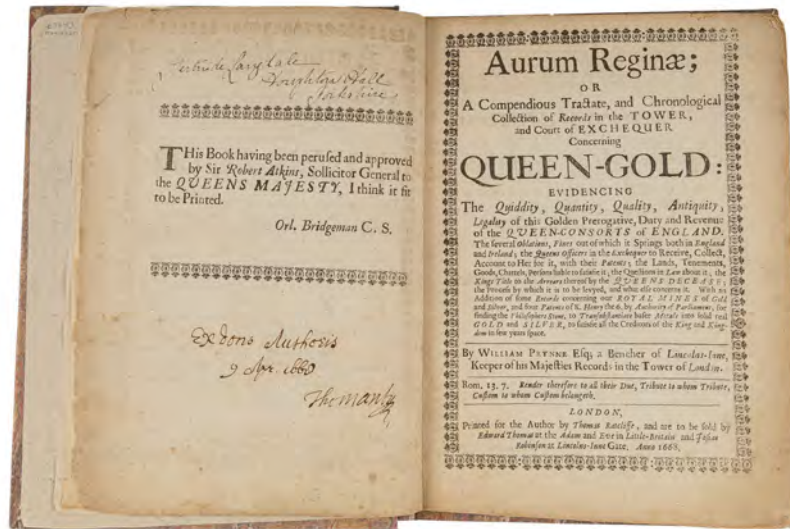 Houghton Hall
Yorkshire
THis Book having been perused and approved
by Sir Robert Atkins, Sollicitor General to
the QVEENS MAJESTY, I think it fit
to be Printed.
Orl. Bridgeman C. S.
Ex dono Authoris
9 Apr. 1668
Tho: Manby
Aurum Reginæ;
OR
A Compendious Tractate, and Chronological
Collection of Records in the TOWER,
and Court of EXCHEQUER
Concerning
QUEEN-GOLD:
EVIDENCING
The Quiddity, Quantity, Quality, Antiquity,
Legality of this Golden Prerogative, Duty and Revenue
of the QVEEN-CONSORTS of ENGLAND.
The several Oblations, Fines out of which it Springs both in England
and Ireland; the Queens Officers in the Exchequer to Receive, Collect,
Account to Her for it, with their Patents; the Lands, Tenements,
Goods, Chattels, Persons liable to satisfie it; the Questions in Law about it; the
Kings Title to the Arrears thereof by the QUEENS DECEASE;
the Process by which it is to be levyed, and what else concerns it. With an
Addition of some Records concerning our ROYAL MINES of Gold
and Silver, and four Patents of K. Henry the 6. by Authority of Parliament, for
finding the Philosophers Stone, to Transubstantiate baser Metals into solid real
GOLD and SILVER, to satisfie all the Creditors of the King and King-
dom in few years space.
By WILLIAM PRYNNE Esq; a Bencher of Lincolns-Inne,
Keeper of his Majesties Records in the Tower of London.
Rom. 13. 7. Render therefore to all their Due, Tribute to whom Tribute,
Custom to whom Custom belongeth.
LONDON,
Printed for the Author by Thomas Ratcliffe, and are to be sold by
Edward Thomas at the Adam and Eve in Little-Britain and Josias
Robinson at Lincolns-Inne Gate, Anno 1668.